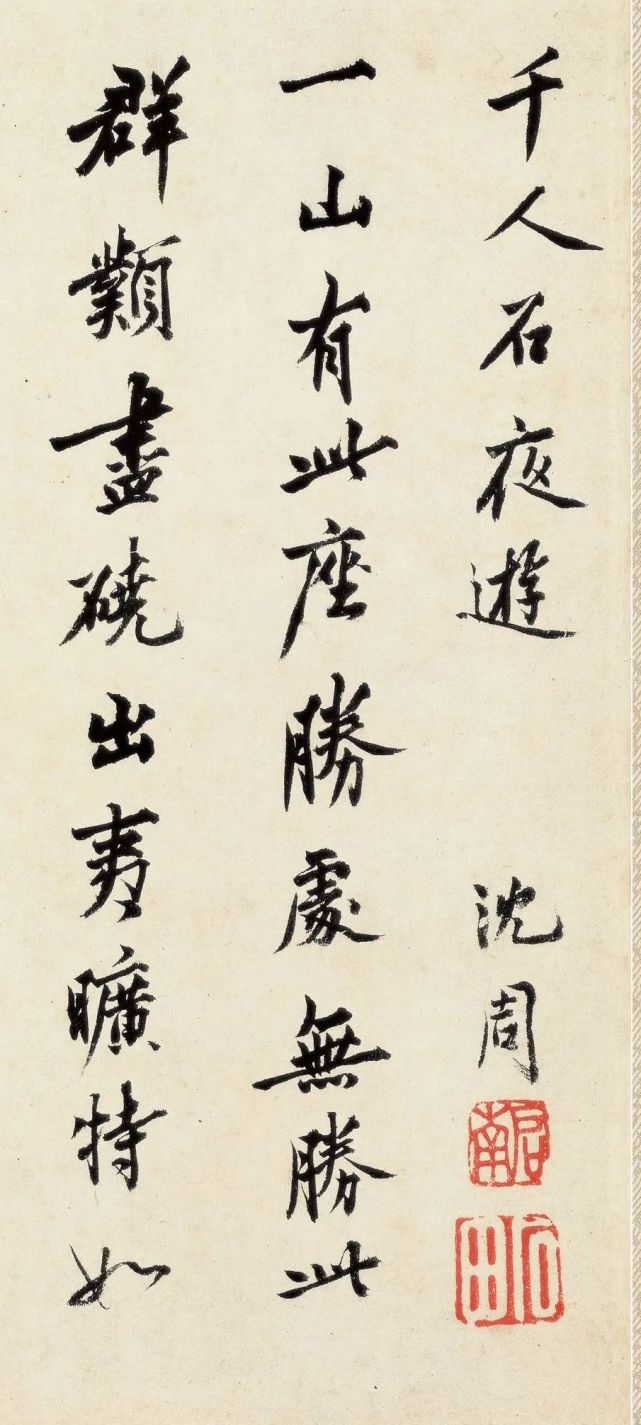 千人石夜遊 沈周
啓南
石田
一山有此座勝處無勝此
群類盡磽出夷曠特如